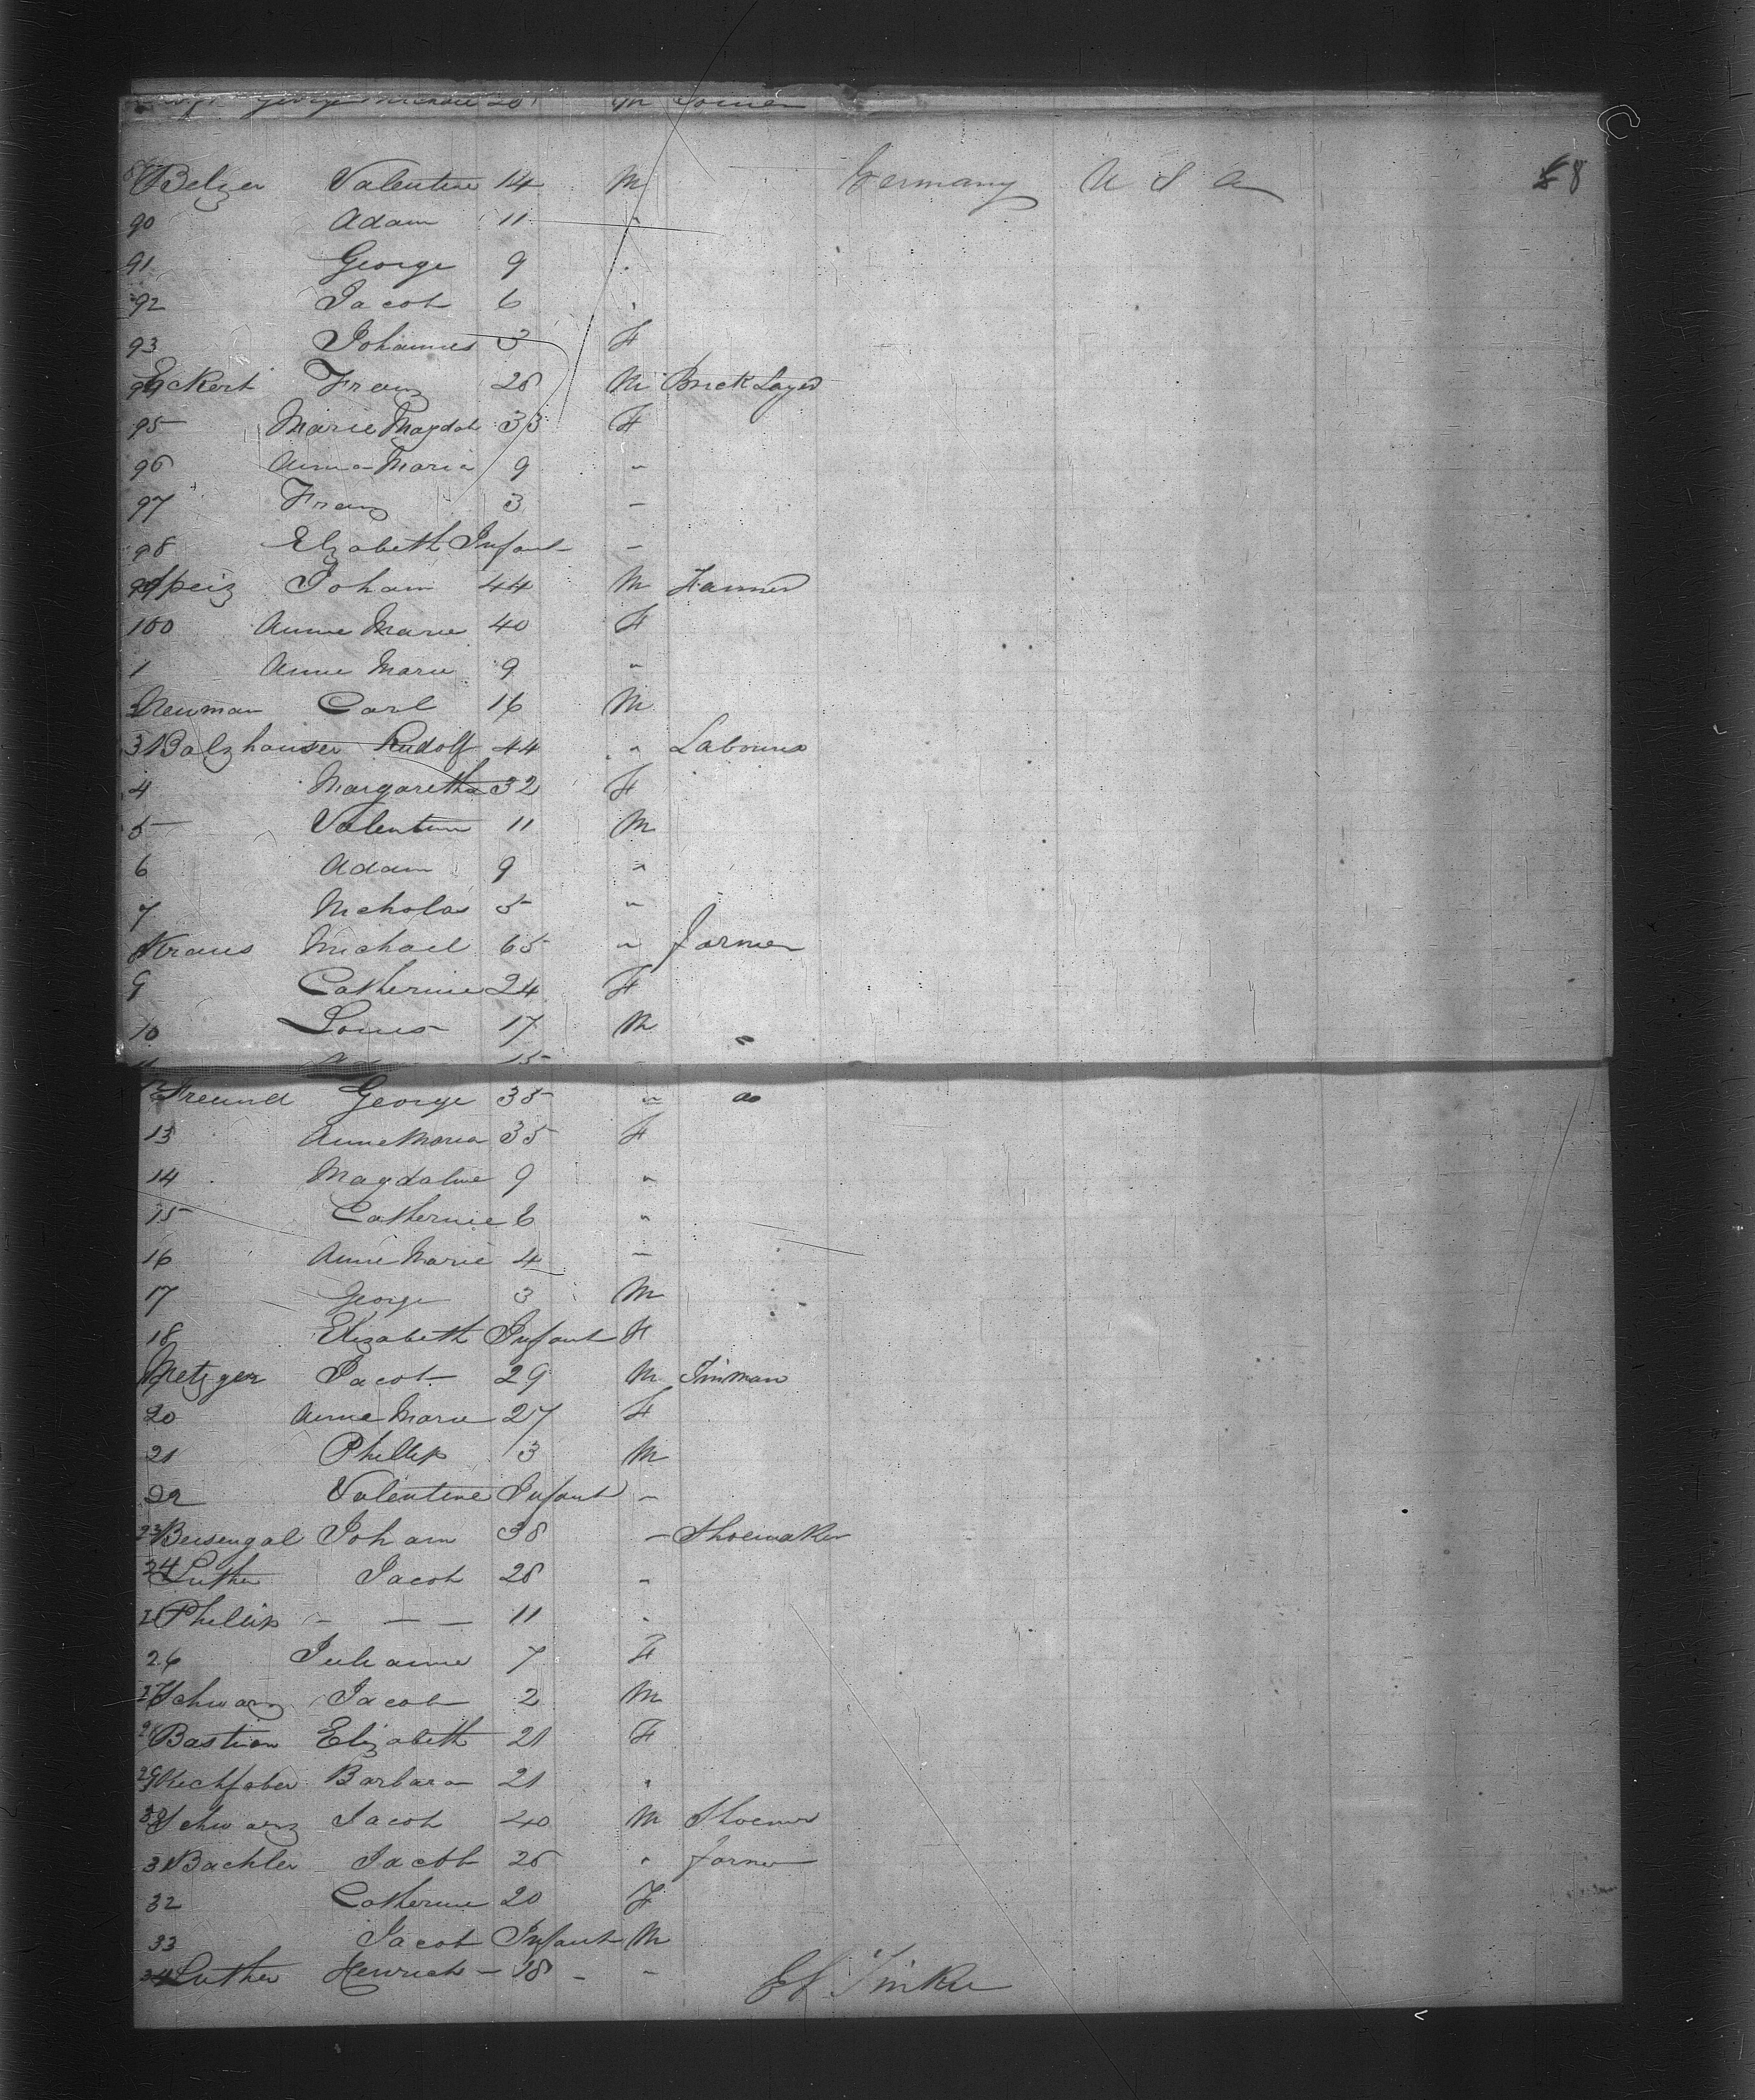 George Michael 20 M
Belzer Valentine 14 M Germany U S A 8
90 Adam 11 "
91 George 9 "
92 Jacob 6 "
93 Johannes 3 F
94 Eckert Franz 28 M Brick Layer
95 Marie Magdal 33 F
96 Anna Maria 9 "
97 Franz 3 "
98 Elizabeth Infant "
99 Speiz Johann 44 M Farmer
100 Anne Marie 40 F
1 Anne Marie 9 "
Neuman Carl 16 M
3 Balzhauser Rudolf 44 " Labourer
4 Margaretha 32 F
5 Valentine 11 M
6 Adam 9 "
7 Nicholas 5 "
Kraus Michael 65 " Farmer
9 Catherine 24 F
10 Louis 17 M "
11 15
12 Freund George 35 " do
13 Anne Maria 35 F
14 Magdaline 9 "
15 Catherine 6 "
16 Anne Marie 4 "
17 George 3 M
18 Elizabeth Infant F
Metzger Jacob 29 M Tinman
20 Anne Marie 27 F
21 Phillip 3 M
22 Valentine Infant "
23 Beisengal Johann 38 " Shoemaker
24 Luther Jacob 28 "
25 Phillip - - - 11 "
26 Julianne 7 F
27 Schwarz Jacob 2 M
28 Bastian Elizabeth 21 F
29 Barbara 21 "
30 Schwarz Jacob 40 M
31 Bachler Jacob 26 " Farmer
32 Catherine 20 F
33 Jacob Infant M
34 Luther Henrich - 18 - "
Tinker